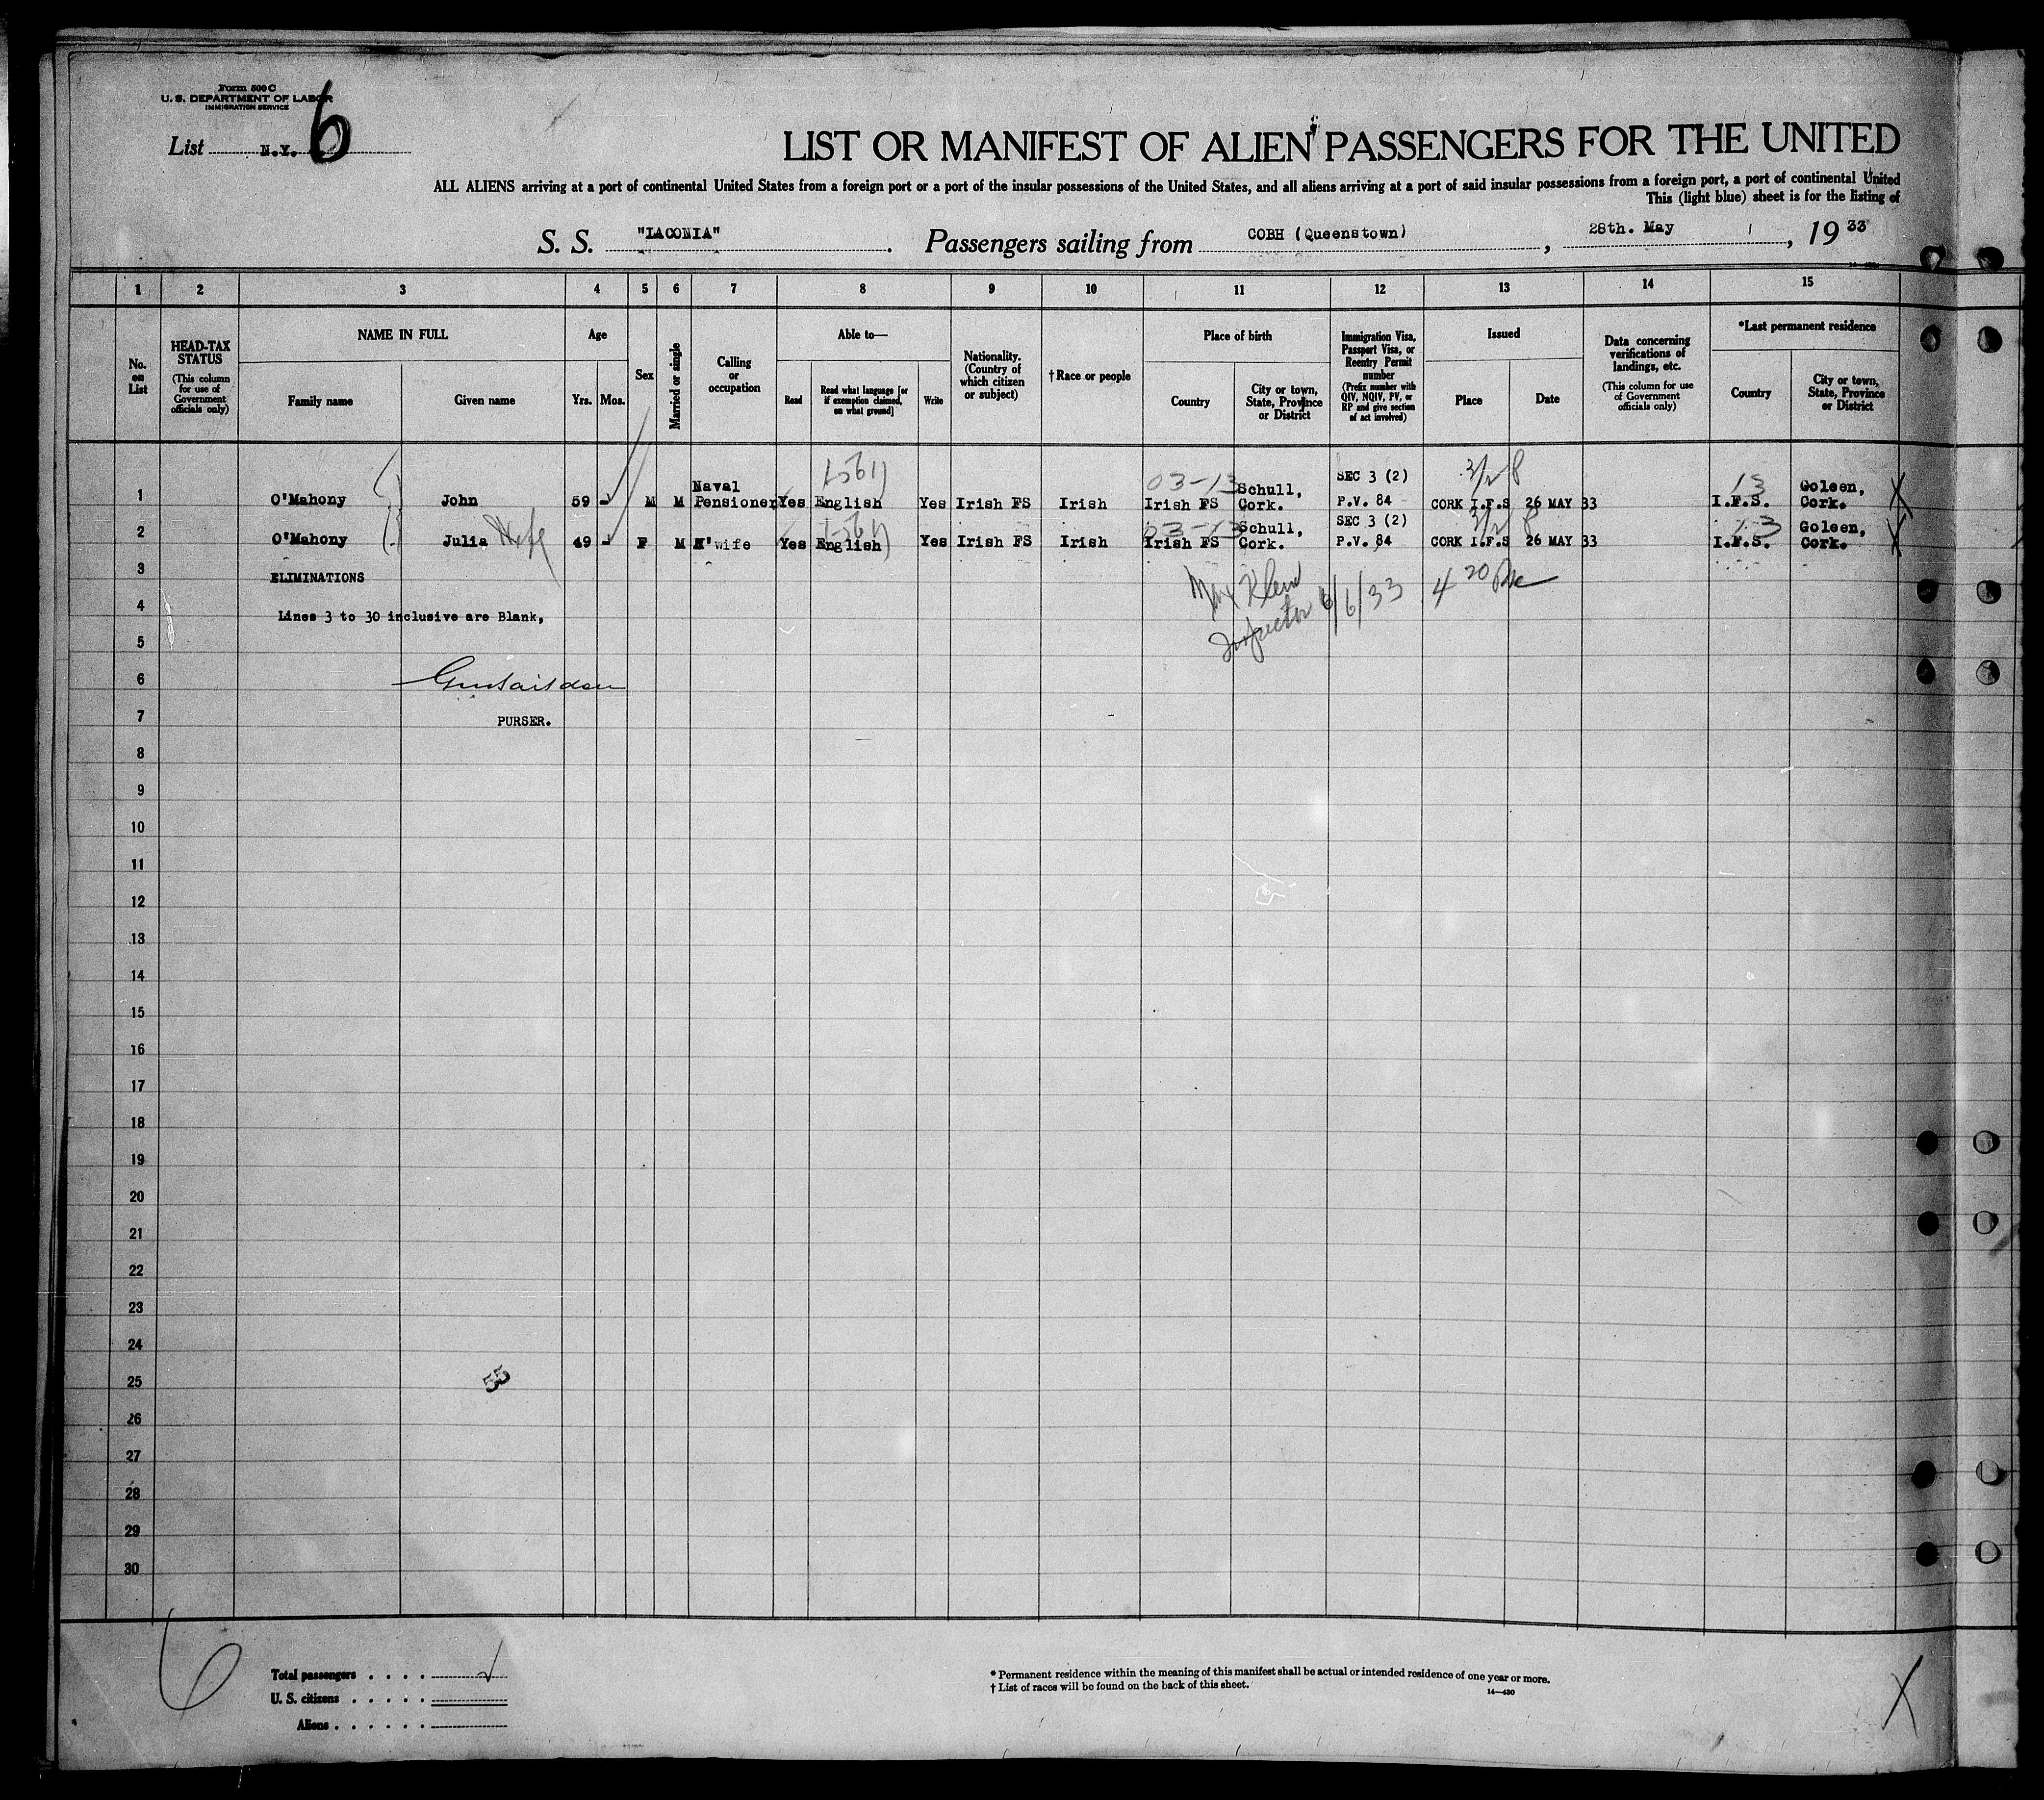 Form 500 C
U. S. DEPARTMENT OF LABOR
IMMIGRATION SERVICE
List N.Y. 6
LIST OR MANIFEST OF ALIEN PASSENGERS FOR THE UNITED
ALL ALIENS arriving at a port of continental United States from a foreign port or a port of the insular possessions of the United States, and all aliens arriving at a port of said insular possessions from a foreign port, a port of continental United
This (light blue) sheet is for the listing of
S. S. "LACONIA". Passengers sailing from COBH (Queenstown), 28th. May, 19 33
1 2 3 4 5 6 7 8 9 10 11 12 13 14 15
No. on List
HEAD-TAX STATUS
(This column for use of Government officials only)
NAME IN FULL
Family name
Given name
Age
Yrs. Mos.
Sex
Married or single
Calling or occupation
Able to—
Read
Read what language [or if exemption claimed, on what ground]
Write
Nationality. (Country of which citizen or subject)
†Race or people
Place of birth
Country
City or town, State, Province or District
Immigration Visa, Passport Visa, or Reentry Permit number
(Prefix number with QIV, NQIV, PV, or RP and give section of act involved)
Issued
Place
Date
Data concerning verifications of landings, etc.
(This column for use of Government officials only)
*Last permanent residence
Country
City or town, State, Province or District
03-13
13
Naval SEC 3 (2)
Schull, Goleen,
1 O'Mahony John 59 - M M Pensioner Yes English Yes Irish FS Irish Irish FS Cork. P.V. 84 CORK I.F.S 26 MAY 33 I.F.S. Cork. X
03-13 SEC 3 (2) 13
Schull, Goleen,
2 O'Mahony Julia Wife 49 - F M H'wife Yes English Yes Irish FS Irish Irish FS Cork. P.V. 84 CORK I.F.S 26 MAY 33 I.F.S. Cork. X
3 ELIMINATIONS
4 Lines 3 to 30 inclusive are Blank,
Inspector 6/6/33 4 20
5
6
7 PURSER.
8
9
10
11
12
13
14
15
16
17
18
19
20
21
22
23
24
25
55
26
27
28
29
30
6
Total passengers . . . .
U. S. citizens . . . . .
Aliens . . . . . .
* Permanent residence within the meaning of this manifest shall be actual or intended residence of one year or more.
† List of races will be found on the back of this sheet.
14—430
X